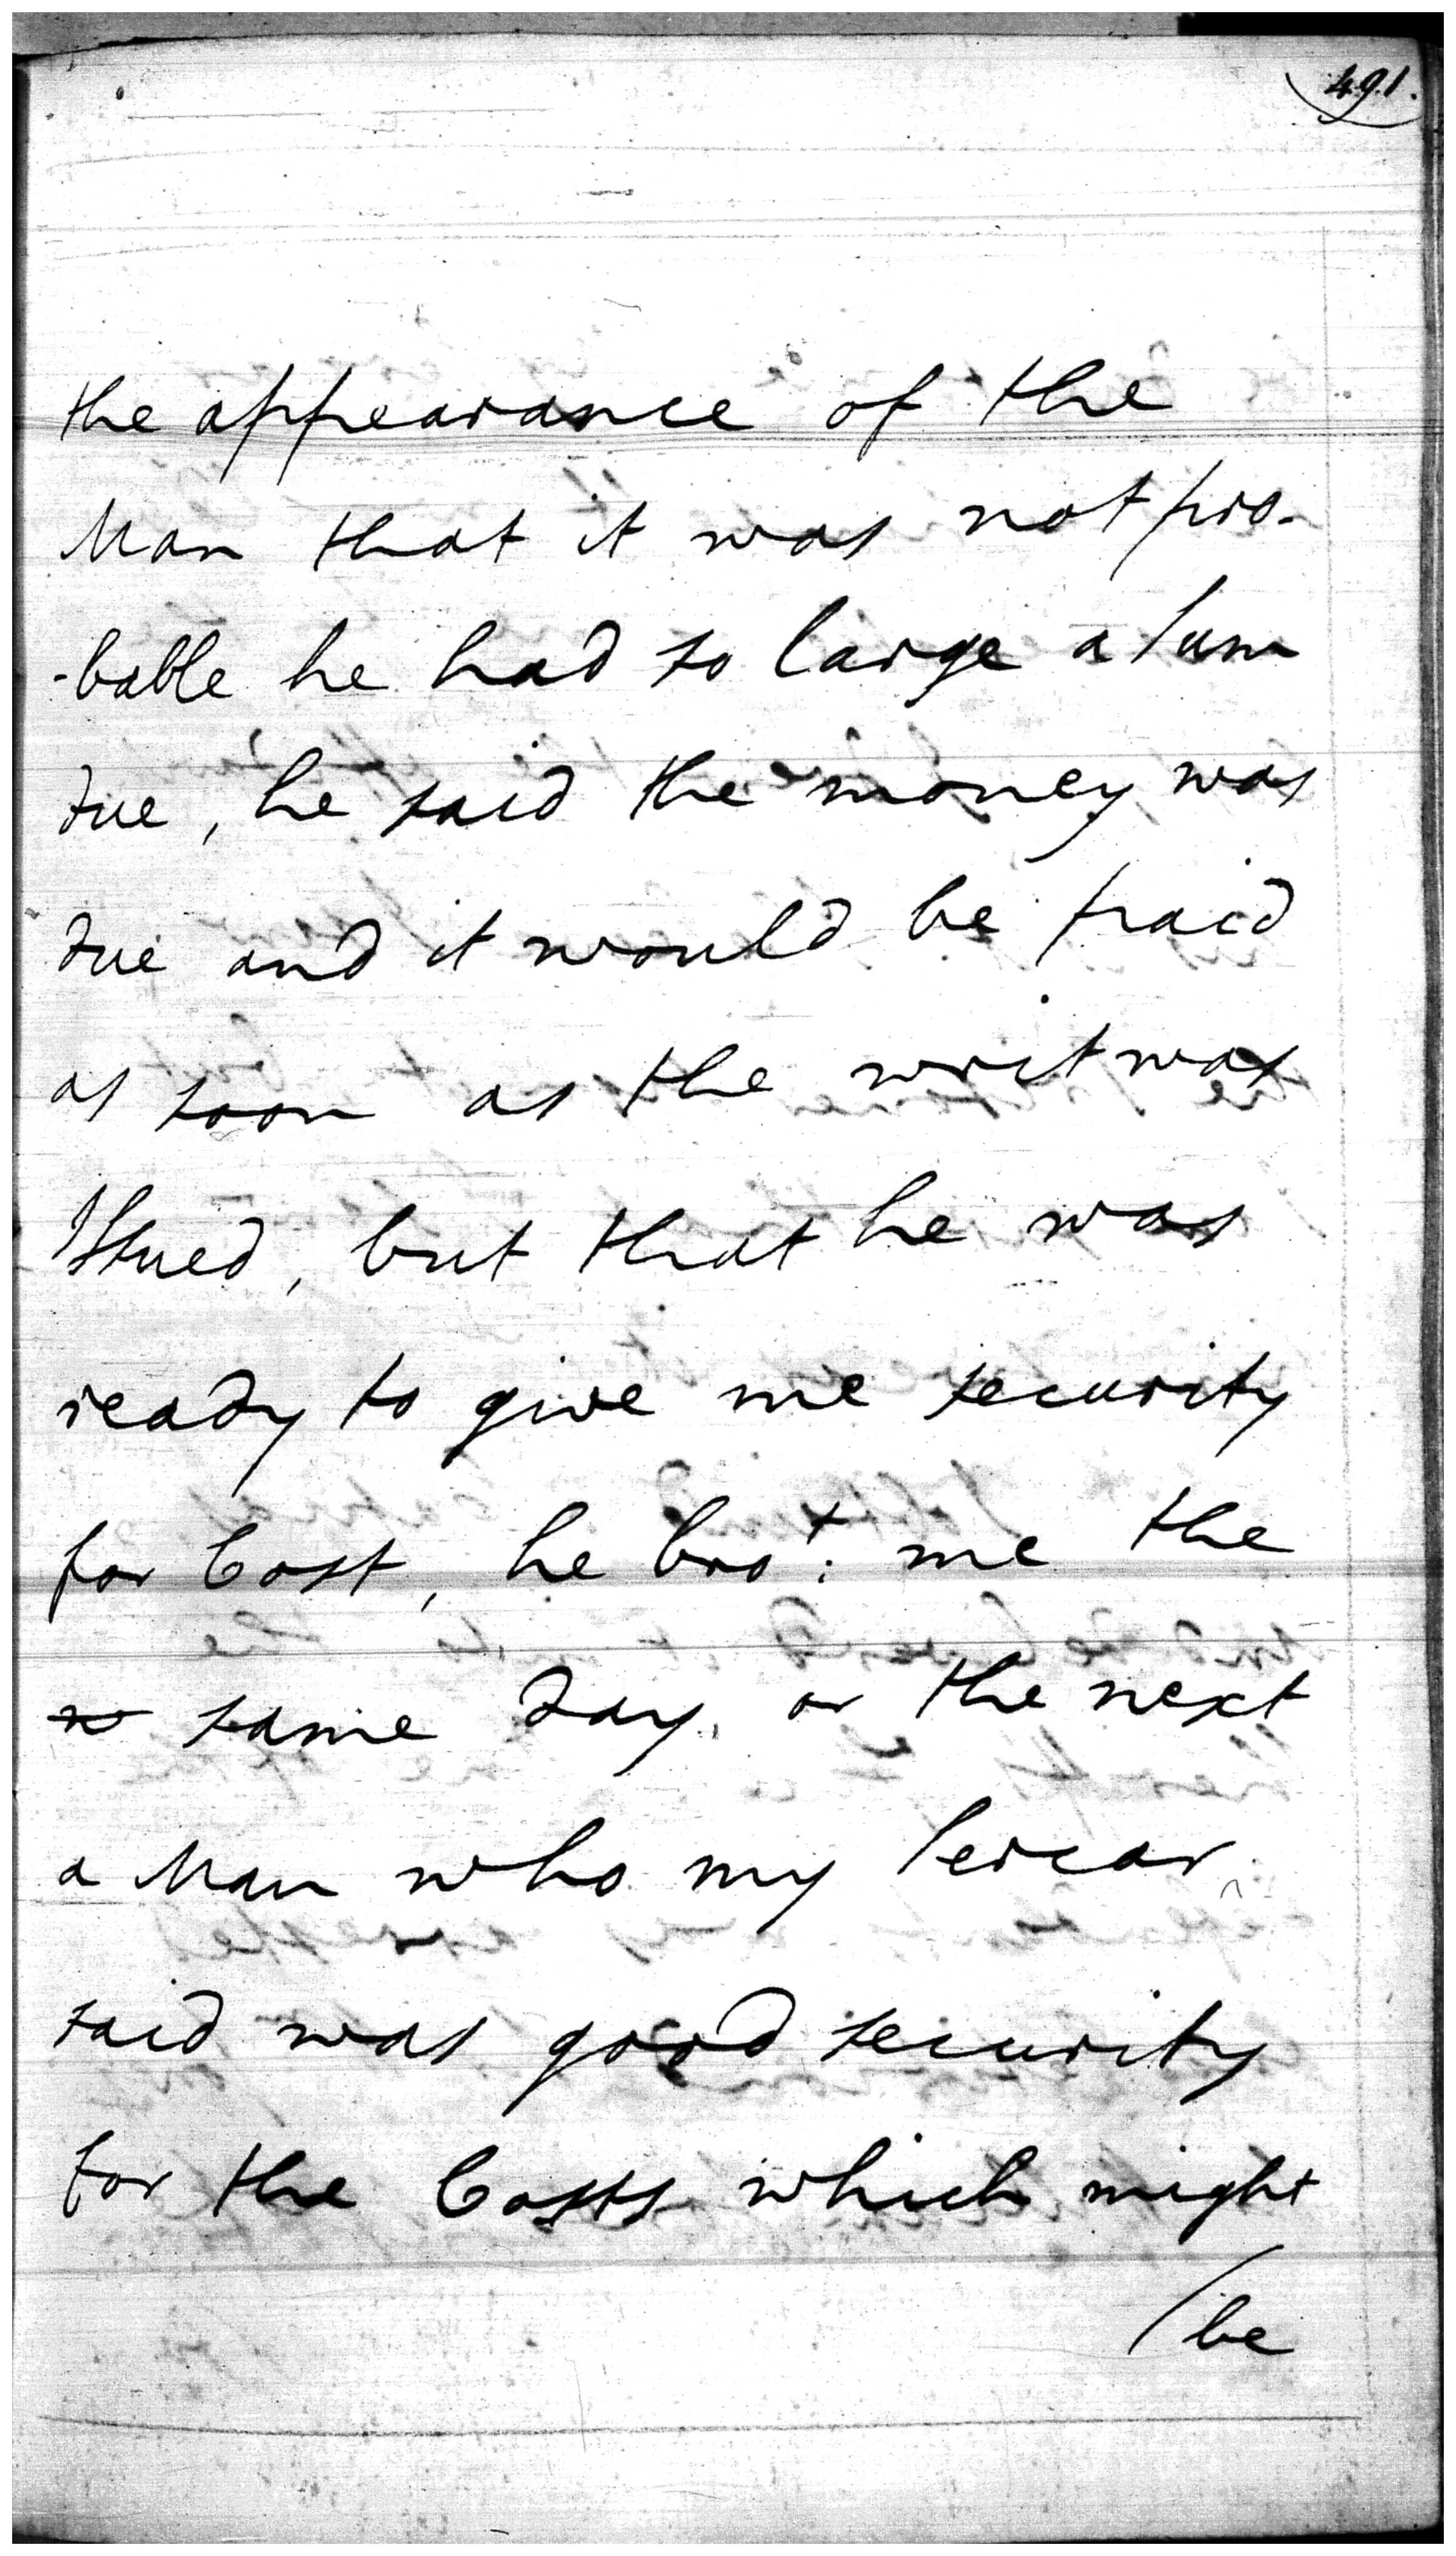 491.
the appearance of the
Man that it was not pro-
-bable he had so large a Sum
due, he said the money was
due and it would be paid
as soon as the writ was
Issued, but that he was
ready to give me security
for Cost, he bro.t me the
n same day, or the next
a Man who my Sercar
said was good security
for the Costs which might
/be